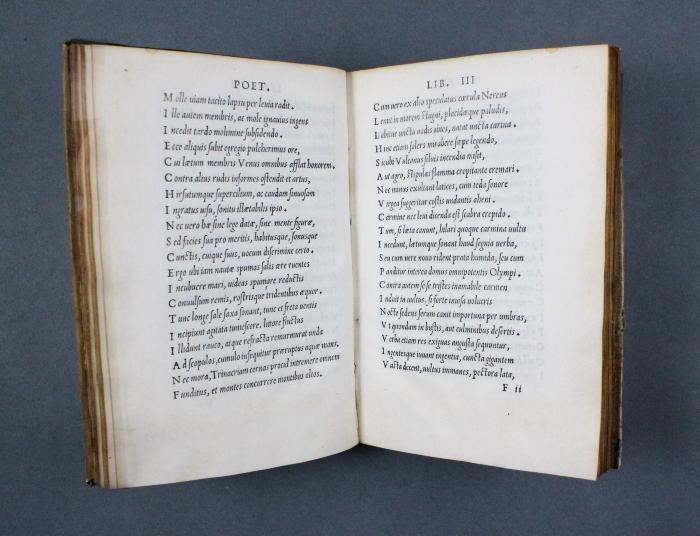 POET.
M olle uiam tacito lapsu per leuia radit.
I lle autem membris, ac mole ignauius ingens
I ncedit tardo molimine subsidendo.
E cce aliquis subit egregio pulcherimus ore,
C ui lætum membris Venus omnibus afflat honorem.
C ontra alius rudis informes ostendit et artus,
H irsutumque supercilium, ac caudam sinuosam
I ngratus uisu, sonitu illætabilis ipso.
N ec uero hæ sine lege datæ, sine mente figuræ,
S ed facies sua pro meritis, habitusque, sonusque
C unctis, cuique suus, uocum discrimine certo.
E rgo ubi iam nautæ spumas salis ære ruentes
I ncubuere mari, uideas spumare reductis
C onuulsum remis, rostrisque tridentibus æquor.
T unc longe sale saxa sonant, tunc et freta uentis
I ncipiunt agitata tumescere. littore fluctus
I llidunt rauco, atque refracta remurmurat unda
A d scopulos, cumulo insequitur præruptus aquæ mons.
N ec mora, Trinacriam cernas procul intremere omnem
F unditus, et montes concurrere montibus altos.
LIB. III
C um uero ex alto speculatus cærula Nereus
L eniit in morem stagni, placidæque paludis,
L abitur uncta uadis abies, natat uncta carina.
H inc etiam solers mirabere sæpe legendo,
S icubi Vulcanus siluis incendia misit,
A ut agro, stipulas flamma crepitante cremari.
N ec minus exiliant latices, cum teda sonore
V irgea suggeritur costis undantis aheni.
C armine nec leui dicenda est scabra crepido.
T um, si læta canunt, hilari quoque carmina uultu
I ncedunt, lætumque sonant haud segnia uerba,
S eu cum uere nouo rident prata humida, seu cum
P anditur interea domus omnipotentis Olympi.
C ontra autem se se tristes inamabile carmen
I nduit in uultus, si forte inuisa uolucris
N octe sedens serum canit importuna per umbras,
V t quondam in bustis, aut culminibus desertis.
V erba etiam res exiguas angusta sequuntur,
I ngentesque iuuant ingentia, cuncta gigantem
V asta decent, uultus immanes, pectora lata,
F ii